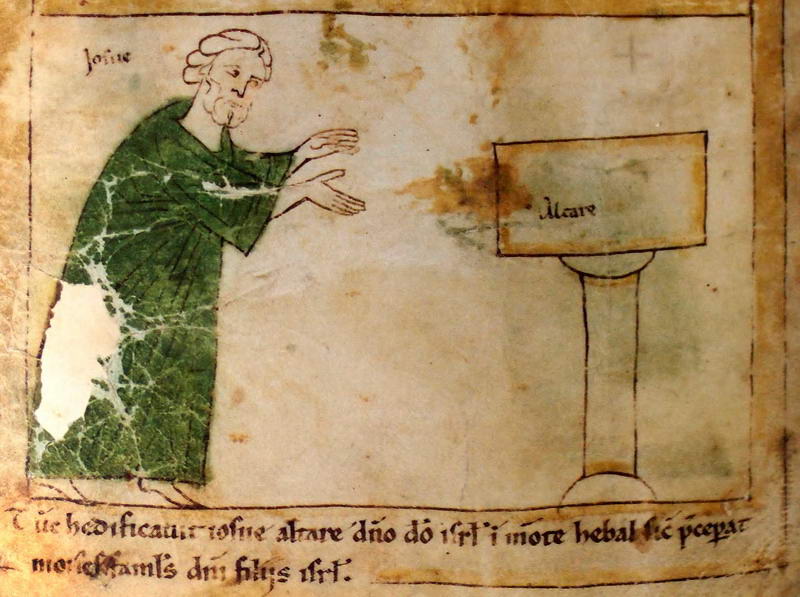 Iosue
Altare
Tūc hedificauit iosue altare dño dō isrł i mōte hebal sic̄ p̄cep̄at
moises famłs dñi filijs isrł.